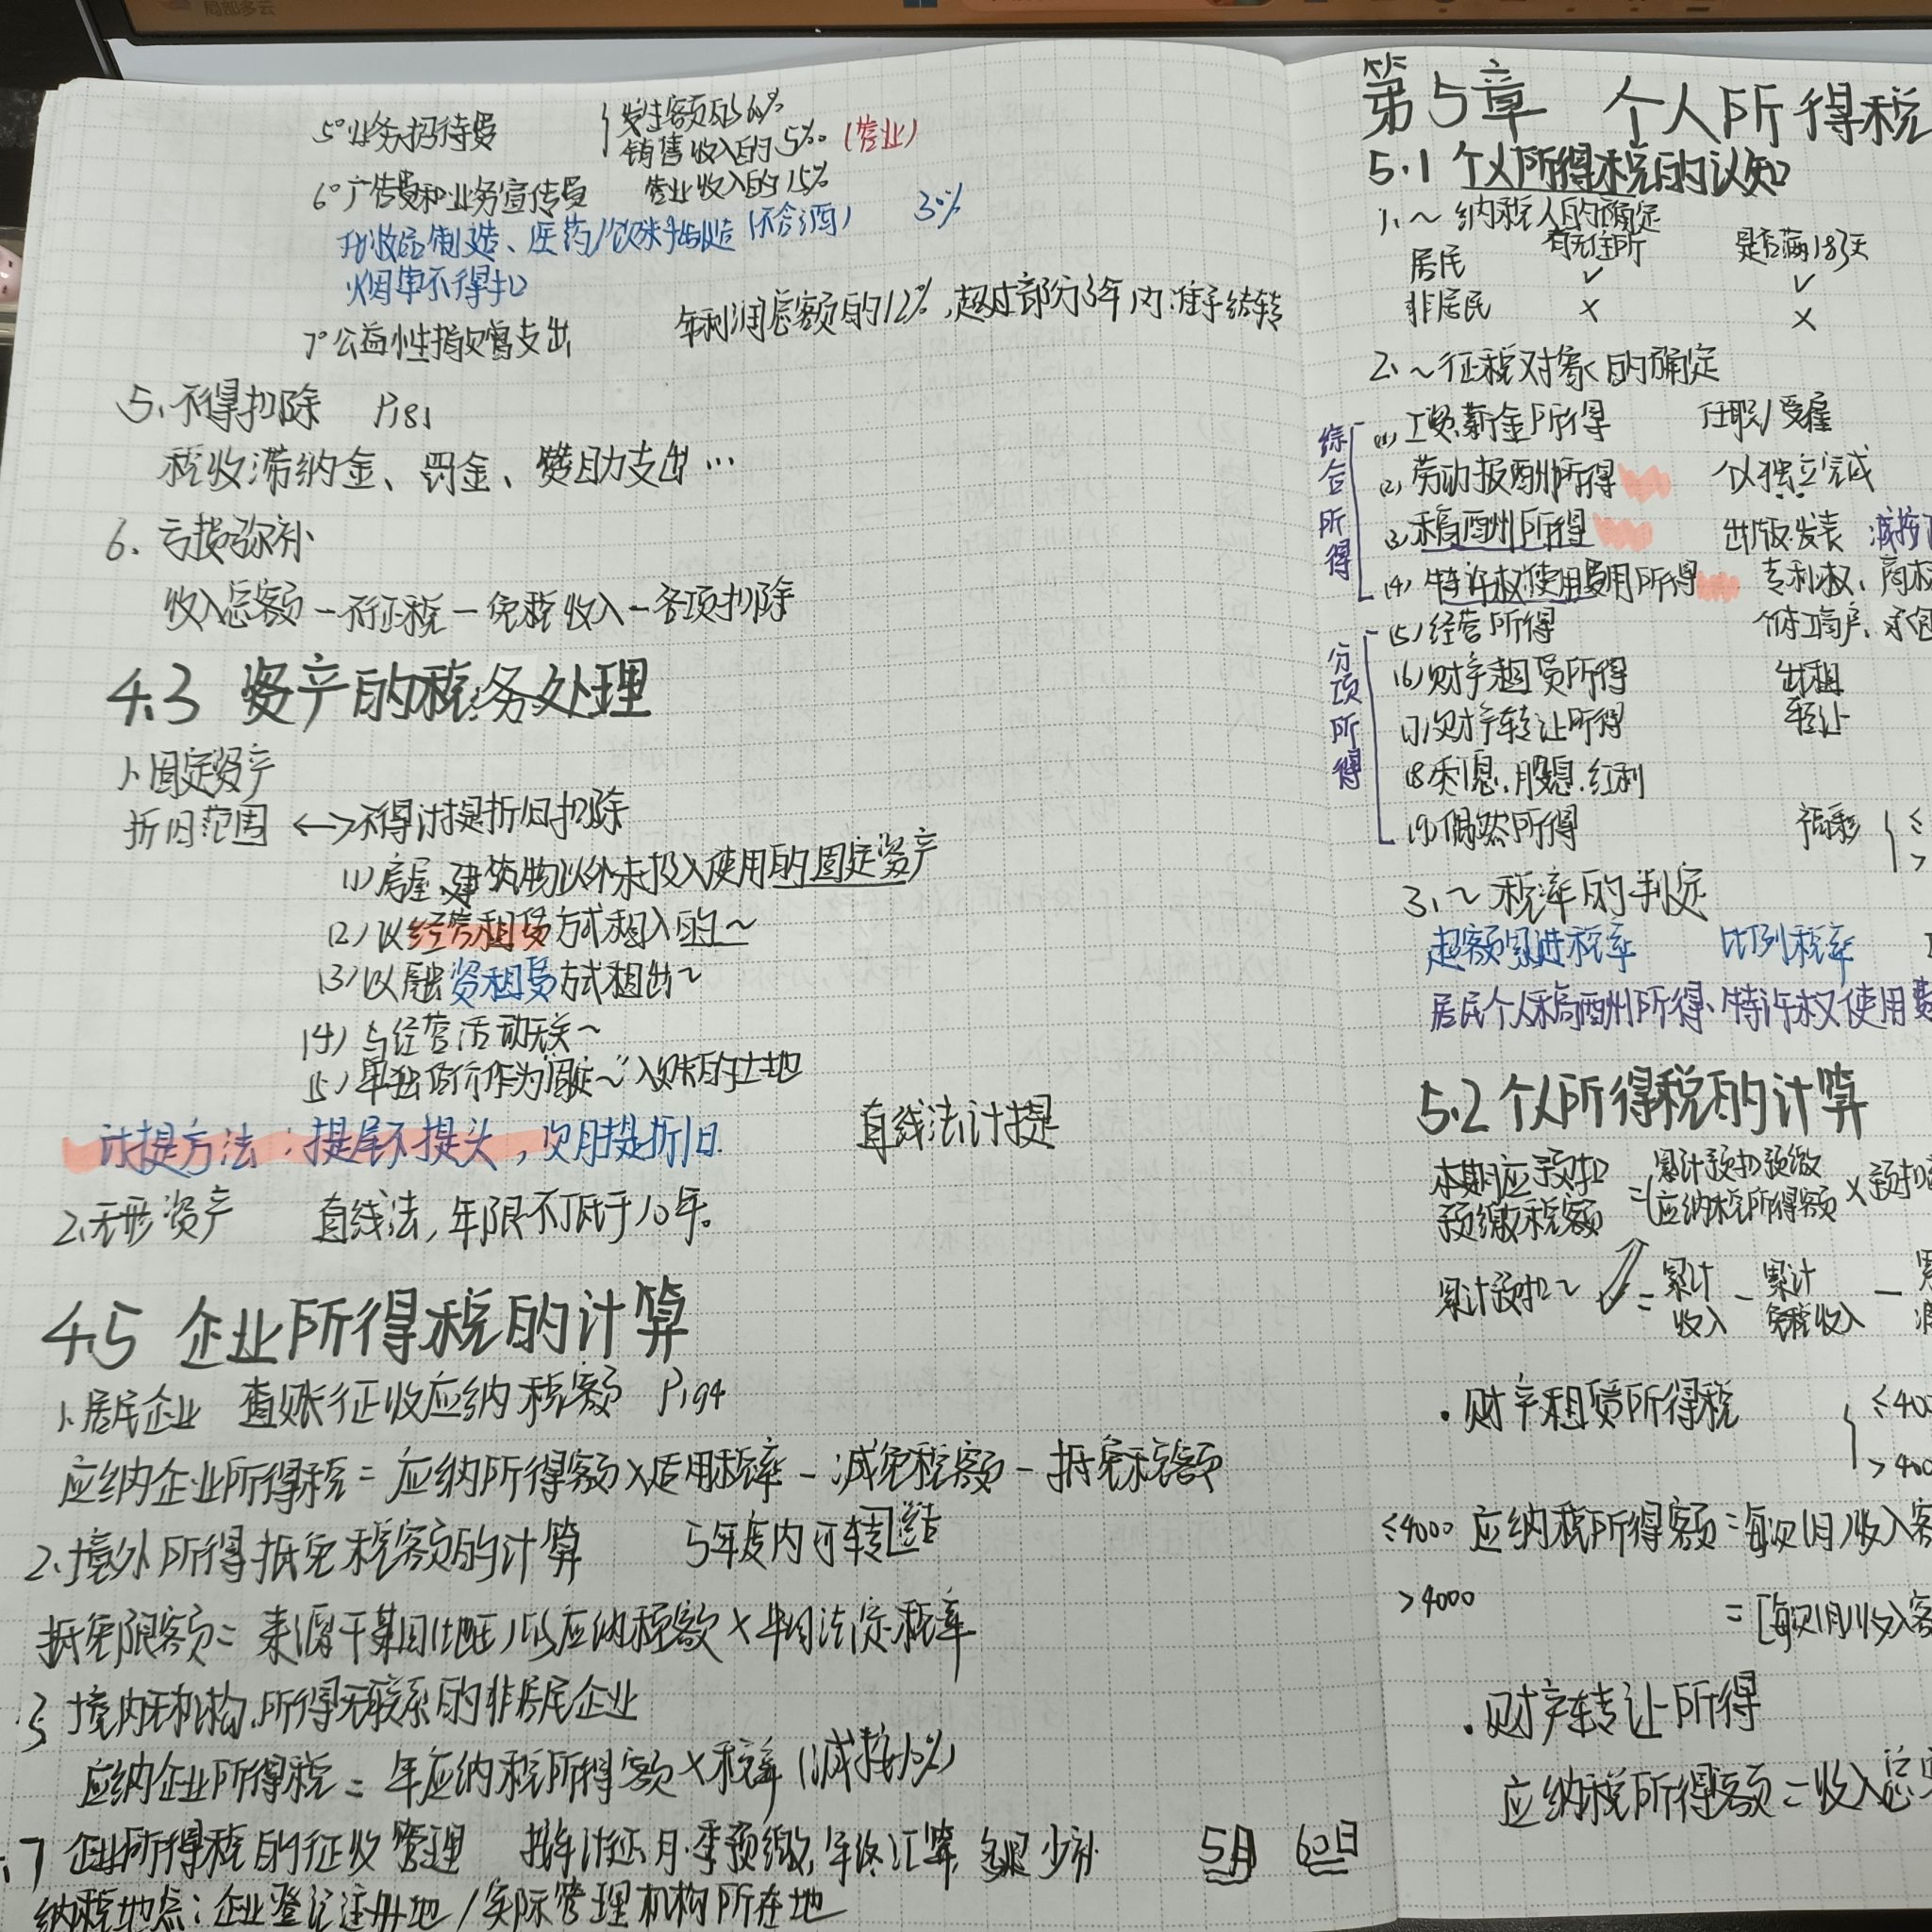 局部多云
5° 业务招待费 发生额的60%
销售收入的5‰ (营业)
6° 广告费和业务宣传费 营业收入的15%
化妆品制造、医药/饮料制造(不含酒) 30%
烟草不得扣
7° 公益性捐赠支出 年利润总额的12%,超过部分3年内准予结转
5、不得扣除 P181
税收滞纳金、罚金、赞助支出…
6、亏损弥补
收入总额-不征税-免税收入-各项扣除
4.3 资产的税务处理
1、固定资产
折旧范围 <->不得计提折旧扣除
(1)房屋、建筑物以外未投入使用的固定资产
(2)以经营租赁方式租入的~
(3)以融资租赁方式租出~
(4)与经营活动无关~
(5)单独估价作为固定~入账的土地
计提方法:提尾不提头,次月提折旧. 直线法计提
2、无形资产 直线法,年限不低于10年。
4.5 企业所得税的计算
1、居民企业 查账征收应纳税额 P194
应纳企业所得税=应纳所得额×适用税率-减免税额-抵免税额
2、境外所得抵免税额的计算 5年度内可结转
抵免限额=来源于某国(地区)的应纳税额×中国法定税率
3、境内无机构,所得无联系的非居民企业
应纳企业所得税=年应纳税所得额×税率(减按10%)
.7 企业所得税的征收管理 按年计征、月.季预缴,年终汇算,多退少补 5月 60日
纳税地点:企业登记注册地/实际管理机构所在地
第5章 个人所得税
5.1 个人所得税的认知
1、~纳税人的确定
有无住所 是否满183天
居民 ✓ ✓
非居民 × ×
2、~征税对象的确定
综合所得
(1)工资.薪金所得 任职/受雇
(2)劳动报酬所得 个人独立完成
(3)稿酬所得 出版.发表 减按
(4)特许权使用费用所得 专利权、商标
分项所得
(5)经营所得 个体工商户、承包
(6)财产租赁所得 出租
(7)财产转让所得 转让
(8)利息.股息.红利
(9)偶然所得 福彩 ≤
>
3、~税率的判定
超额累进税率 比例税率
居民个人稿酬所得、特许权使用费
5.2 个人所得税的计算
本期应预扣预缴税额=(累计预扣预缴应纳税所得额×预扣
累计预扣~=累计收入-累计免税收入-累
·财产租赁所得税 ≤400
>400
≤4000 应纳税所得额=每次(月)收入额
>4000 =[每次(月)收入额
·财产转让所得
应纳税所得额=收入总